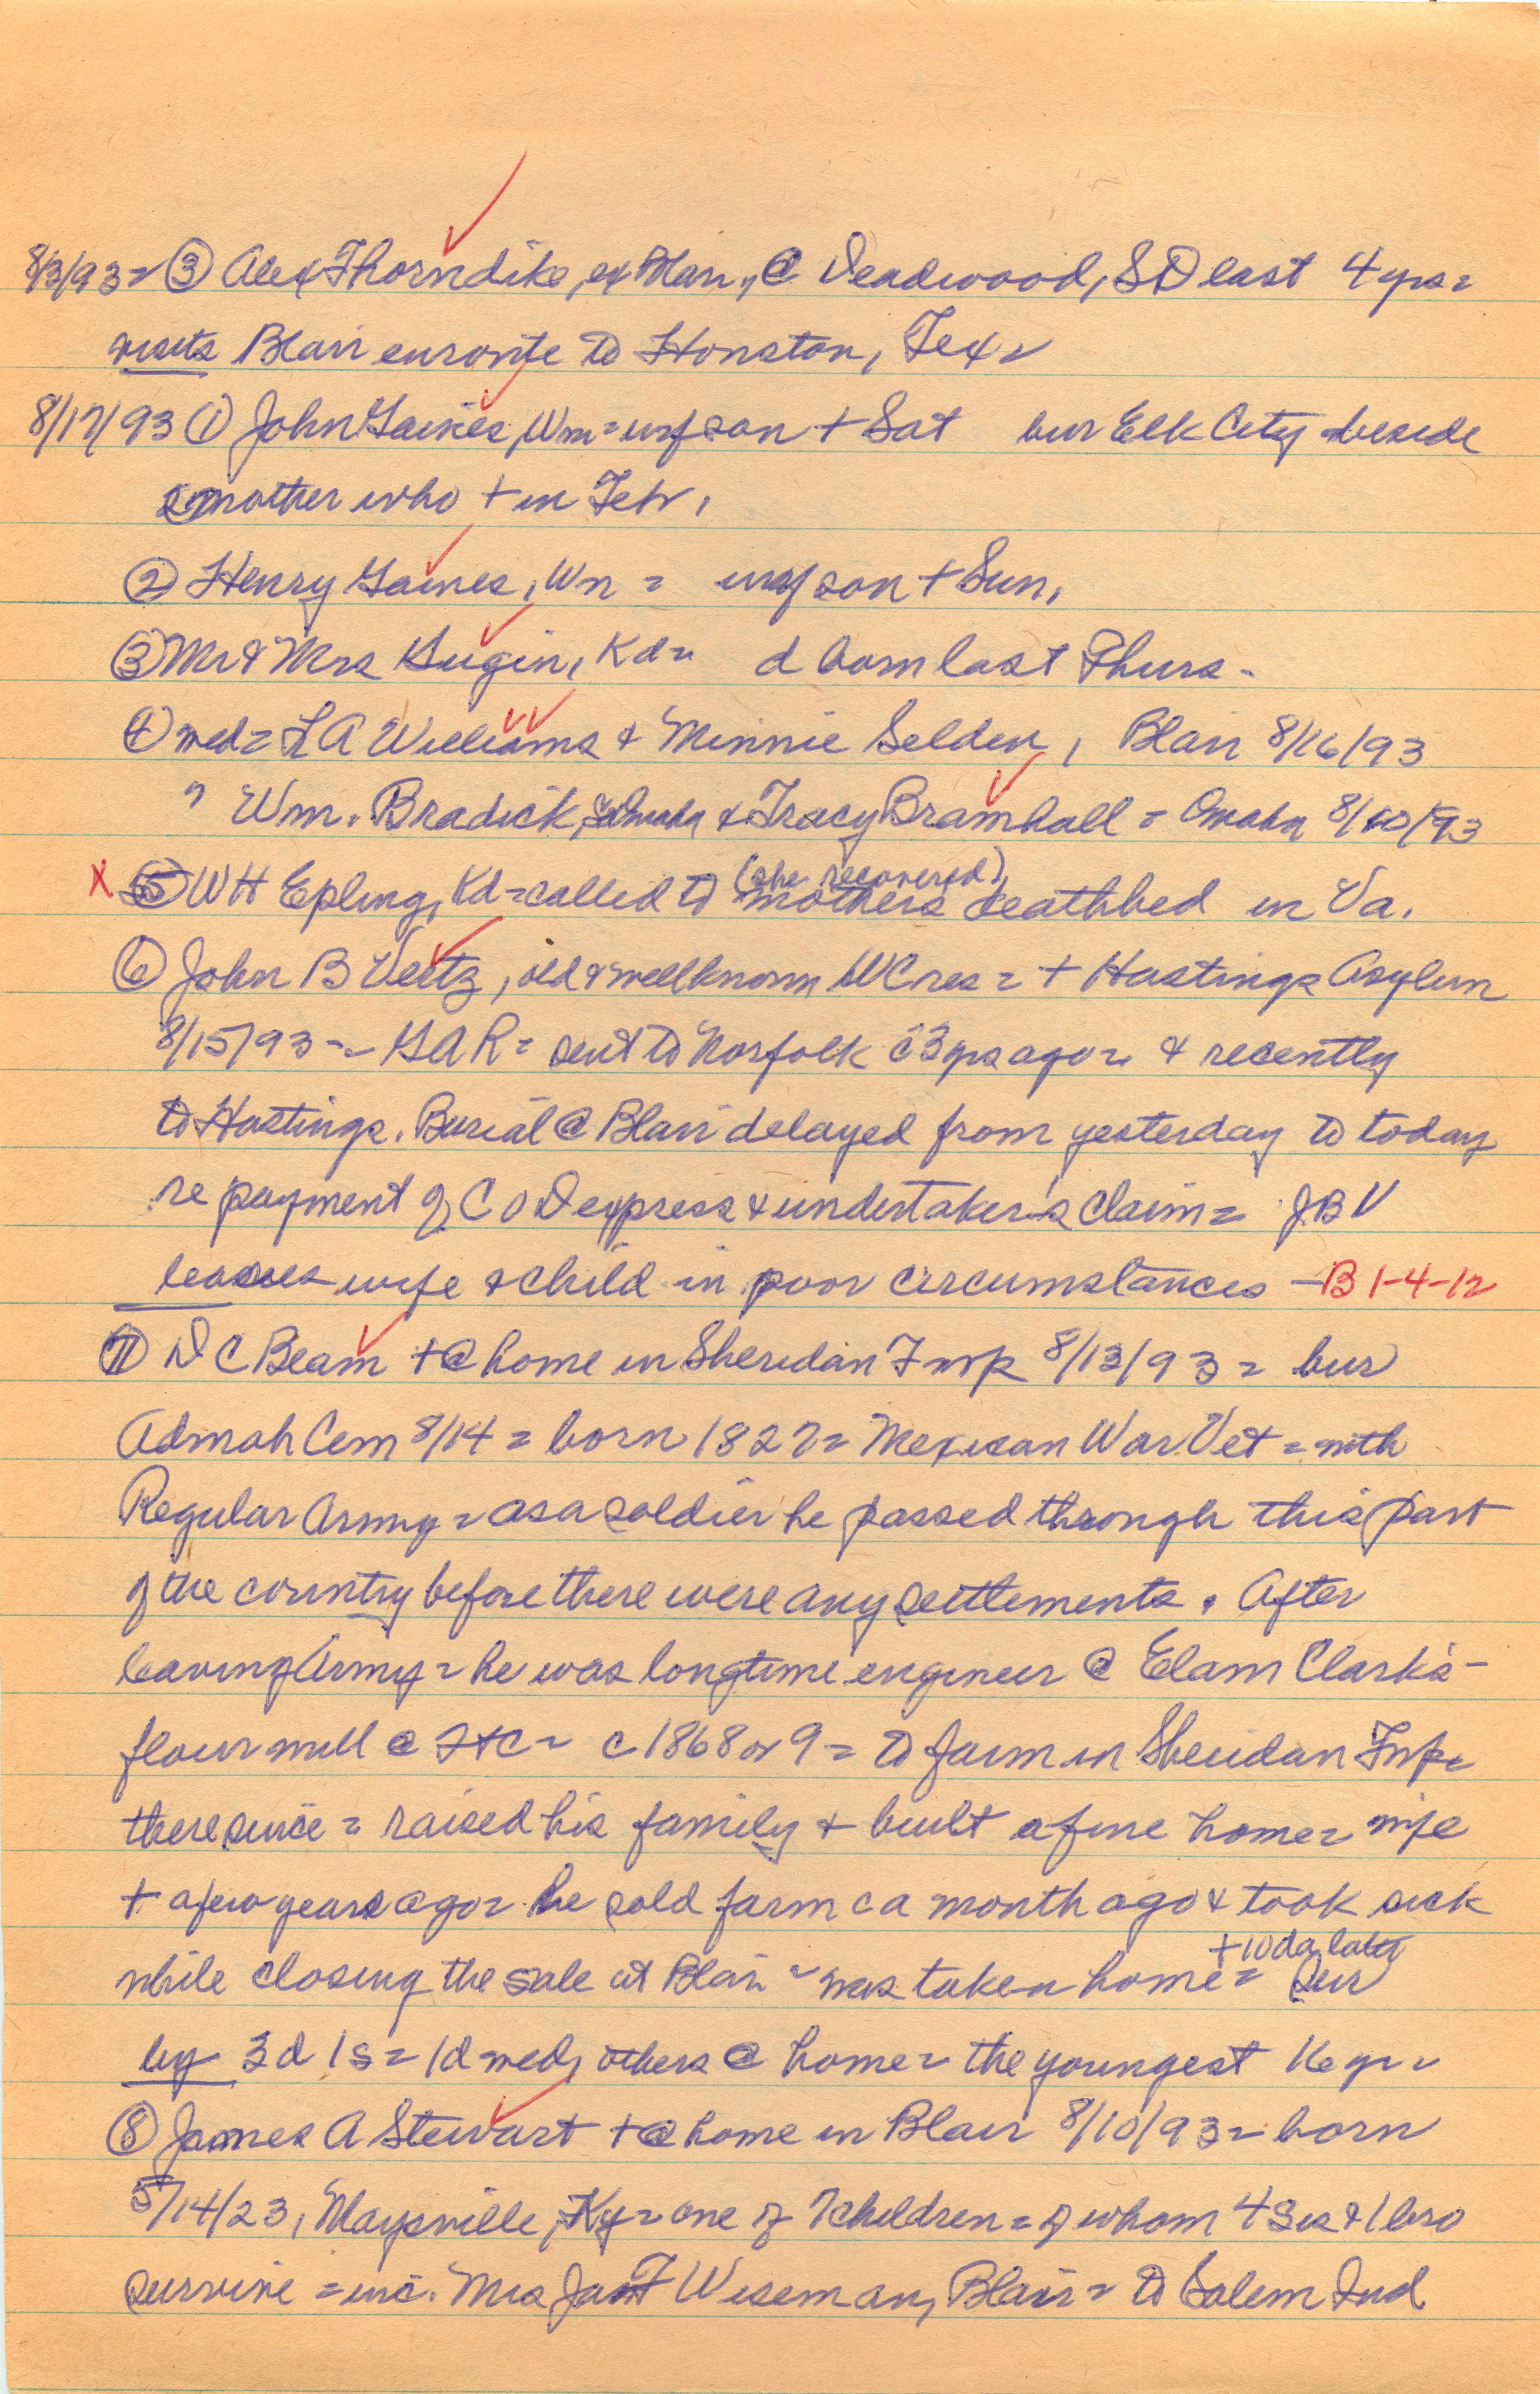 8/3/93 = ③ Alex Thorndike, ex Blair, @ Deadwood, SD last 4 yrs =
visits Blair enroute to Houston, Tex =
8/17/93 ① John Gaines, Wm = inf son + Sat bur Elk City beside
mother who + in Feb.
② Henry Gaines, Wn = inf son + Sun.
③ Mr & Mrs Gugin, Kd = d born last Thurs -
④ wed = L A Williams & Minnie Selden, Blair 8/16/93
" Wm. Bradick, Omaha & Tracy Bramhall = Omaha 8/10/93
X ⑤ W H Epling, Kd = called to mothers deathbed in Va.
(she recovered)
⑥ John B Veitz, old & well known WC res = + Hastings Asylum
8/15/93 = GAR = sent to Norfolk c 3 yrs ago = & recently
to Hastings. Burial @ Blair delayed from yesterday to today
re payment of C O D express & undertaker's claim = JBV
leaves wife & child in poor circumstances - B 1-4-12
⑦ D C Beam + @ home in Sheridan Twp 8/13/93 = bur
Admah Cem 8/14 = born 1827 = Mexican War Vet = with
Regular Army = as a soldier he passed through this part
of the country before there were any settlements. After
leaving Army = he was longtime engineer @ Elam Clark's -
flour mill @ FtC = c 1868 or 9 = to farm in Sheridan Twp =
there since = raised his family & built a fine home = wife
+ a few years ago = he sold farm c a month ago & took sick
while closing the sale at Blair = was taken home = + 10 da later Sur
by 3 d 1 s = 1 d wed, others @ home = the youngest 16 yr =
⑧ James A Stewart + @ home in Blair 8/10/93 = born
5/14/23, Maysville, Ky = one of 7 children = of whom 4 sis & 1 bro
survive = inc. Mrs Jas T Wiseman, Blair = to Salem Ind